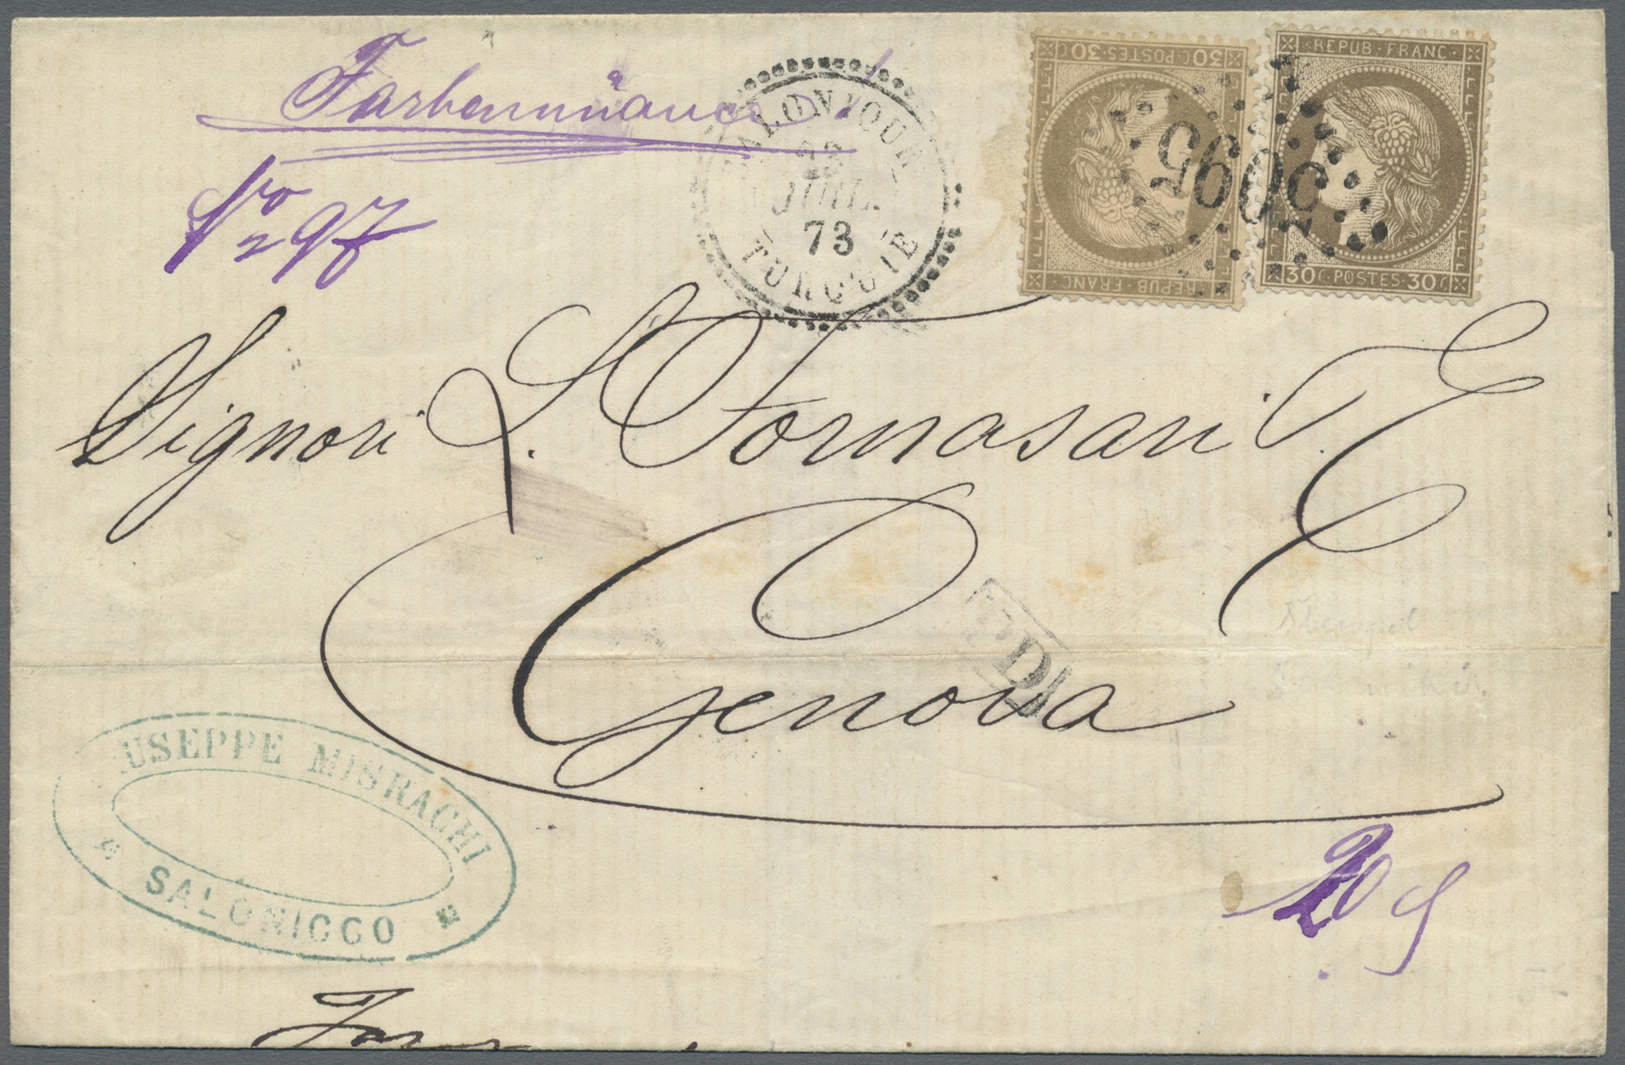 Farbennüance
No 297
SALONIQUE
22
JUIL.
73
TURQUIE
30 C. POSTES 30 C
REPUB. FRANC.
REPUB. FRANC.
30 C. POSTES 30 C
5095
Signori L. Fornasari
Genova
PD
USEPPE MISRACHI
SALONICCO
20